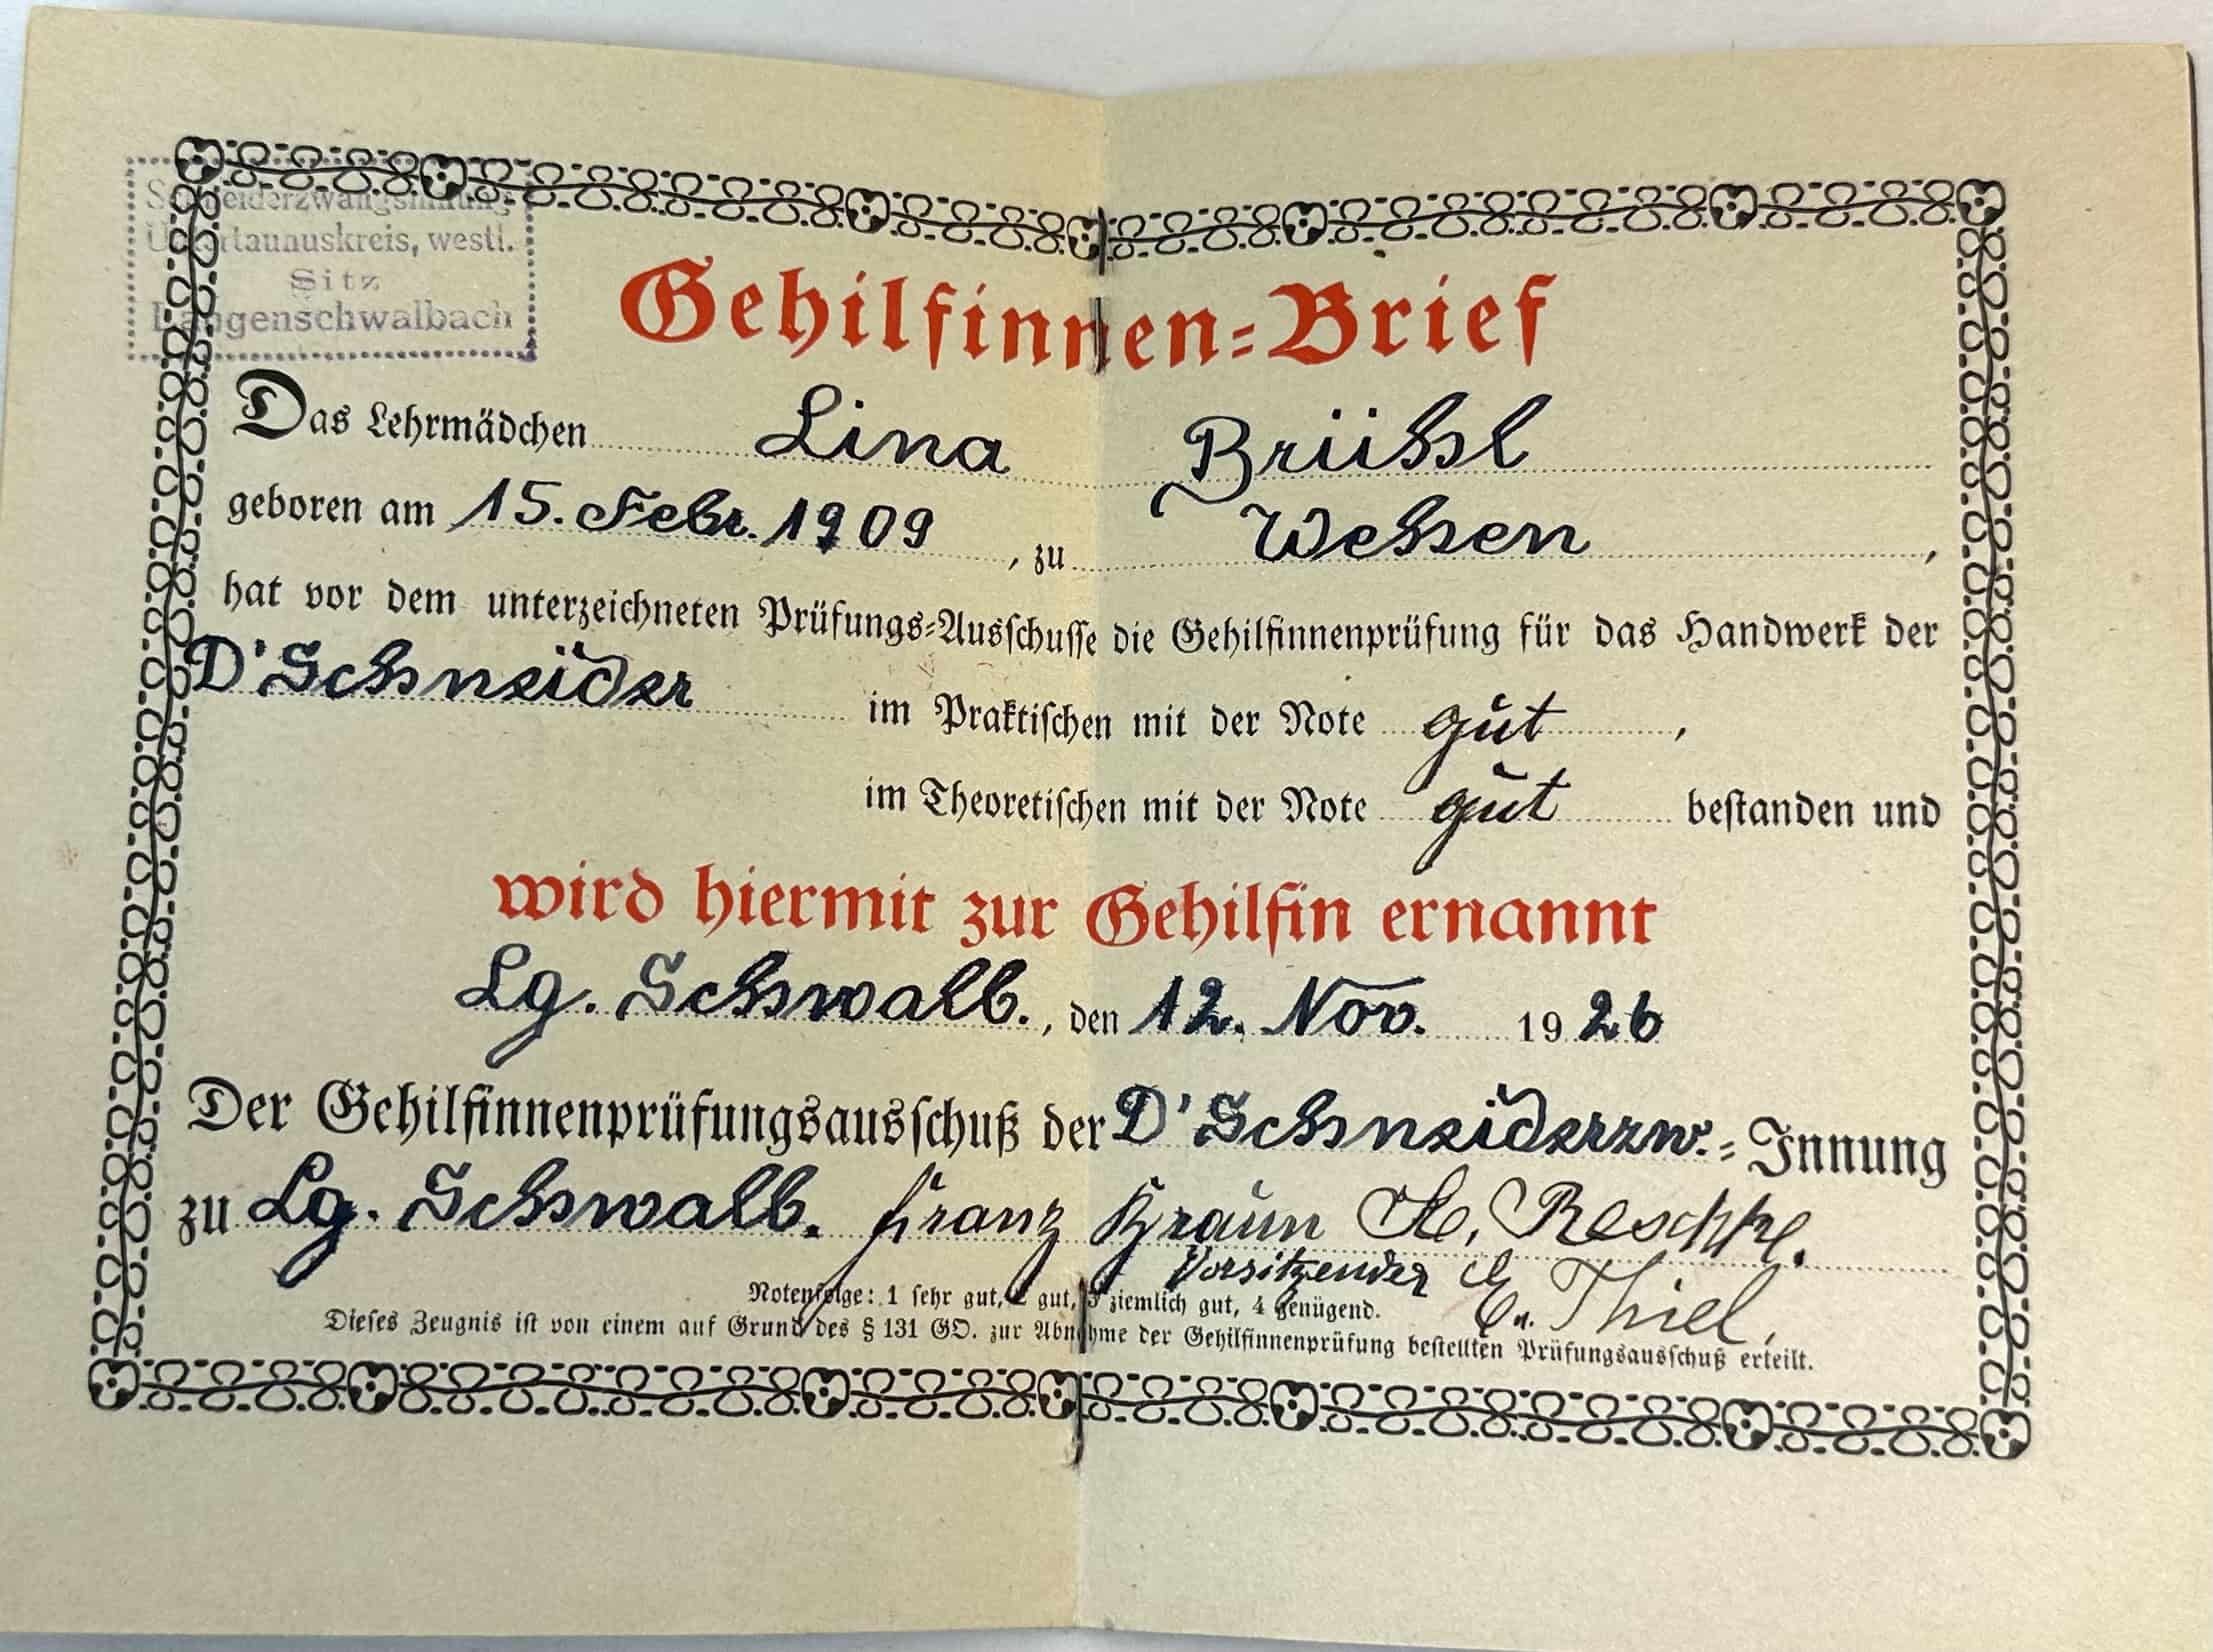 Schneiderzwangsinnung
Untertaunuskreis, westl.
Sitz
Langenschwalbach
Gehilfinnen=Brief
Das Lehrmädchen Lina Brühl
geboren am 15. Febr. 1909, zu Wehen,
hat vor dem unterzeichneten Prüfungs=Ausschusse die Gehilfinnenprüfung für das Handwerk der
D'Schneider im Praktischen mit der Note gut,
im Theoretischen mit der Note gut bestanden und
wird hiermit zur Gehilfin ernannt
Lg. Schwalb., den 12. Nov. 1926
Der Gehilfinnenprüfungsausschuß der D'Schneiderzw.=Innung
zu Lg. Schwalb. Franz Braun H. Reschke.
Vorsitzender Thiel.
Notenfolge: 1 sehr gut, 2 gut, 3 ziemlich gut, 4 genügend.
Dieses Zeugnis ist von einem auf Grund des § 131 GO. zur Abnahme der Gehilfinnenprüfung bestellten Prüfungsausschuß erteilt.